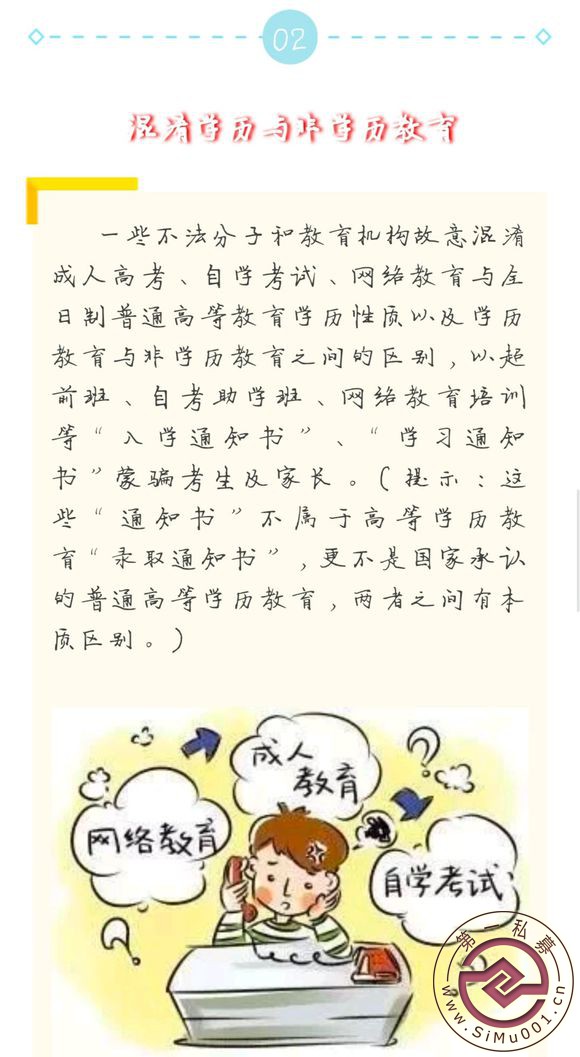 02
混淆学历与非学历教育
一些不法分子和教育机构故意混淆
成人高考、自学考试、网络教育与全
日制普通高等教育学历性质以及学历
教育与非学历教育之间的区别，以超
前班、自考助学班、网络教育培训
等“入学通知书”、“学习通知
书”蒙骗考生及家长。(提示：这
些“通知书”不属于高等学历教
育“录取通知书”，更不是国家承认
的普通高等学历教育，两者之间有本
质区别。)
成人
教育
网络教育
自学考试
聊私募
www.SiMu001.cn